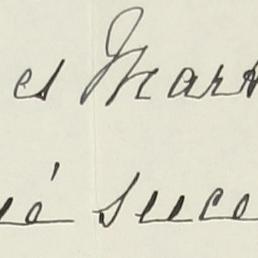 es Mark
ué succe